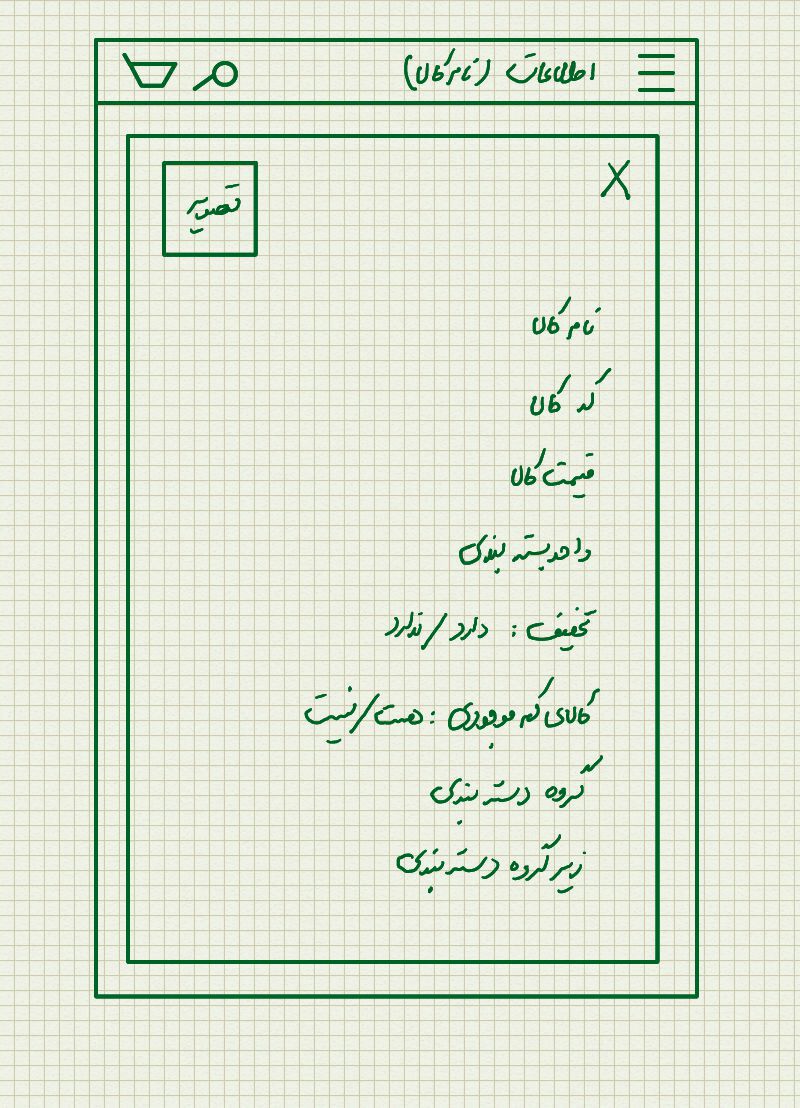 اطلاعات (نام کالا)
تصویر
X
نام کالا
کد کالا
قیمت کالا
واحد بسته بندی
تخفیف : دارد / ندارد
کالای کم موجودی : هست / نیست
گروه دسته بندی
زیر گروه دسته بندی